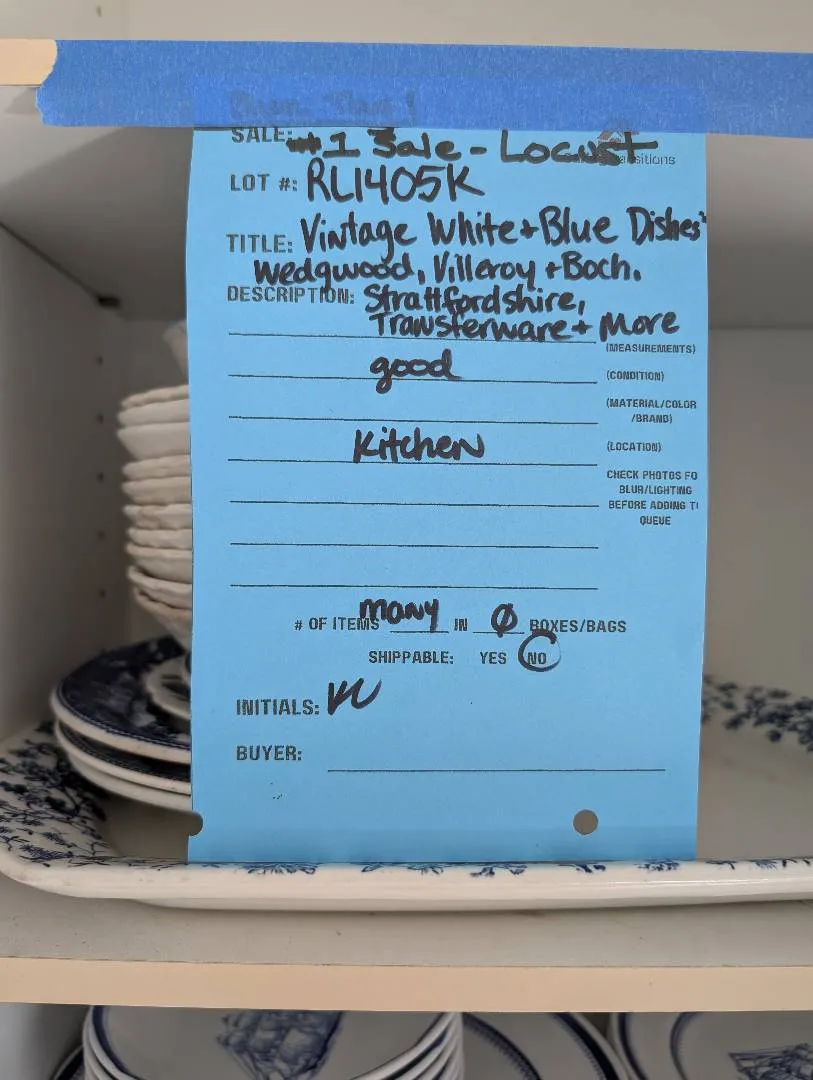 SALE: #1 Sale - Locust
LOT #: RL1405K
TITLE: Vintage White + Blue Dishes
Wedgwood, Villeroy + Boch.
DESCRIPTION: Strattfordshire,
Transferware + More
(MEASUREMENTS)
good (CONDITION)
(MATERIAL/COLOR
/BRAND)
Kitchen (LOCATION)
CHECK PHOTOS FO
BLUR/LIGHTING
BEFORE ADDING T
QUEUE
# OF ITEMS many IN Ø BOXES/BAGS
SHIPPABLE: YES NO
INITIALS:
BUYER: